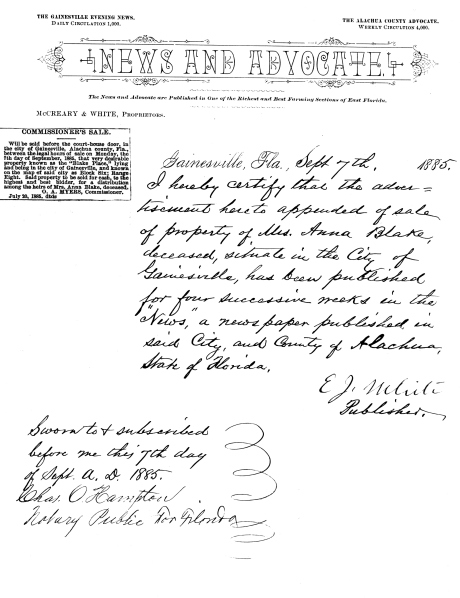 THE GAINESVILLE EVENING NEWS.
DAILY CIRCULATION 1,000.
THE ALACHUA COUNTY ADVOCATE.
WEEKLY CIRCULTION 4,000.
NEWS AND ADVOCATE.
The News and Advocate are Published in One of the Richest and Best Farming Sections of East Florida.
MCCREARY & WHITE, PROPRIETORS.
COMMISSIONER'S SALE.
Will be sold before the court-house door, in
the city of Gainesville, Alachua county, Fla.,
between the legal hours of sale on Monday, the
7th day of September, 1885, that very desirable
property known as the "Blake Place," lying
and being in the city of Gainesville, and known
on the map of said city as Block Six; Range
Eight. Said property to be sold for cash, to the
highest and best bidder, for a distribution
among the heirs of Mrs. Anna Blake, deceased.
O. A. MYERS, Commissioner.
July 25, 1885. dtds
Gainesville, Fla., Sept 7th. 1885.
I hereby certify that the adver=
tisment hereto appended of sale
of property of Mrs. Anna Blake,
deceased, situate in the City of
Gainesville, has been published
for four successive weeks in the
"News," a newspaper published in
said City, and County of Alachua,
State of Florida.
E J. White
Publisher.
Sworn to & subscribed
before me this 7th day
of Sept. A. D. 1885.
Chas. O Hampton
Notary Public For Florida